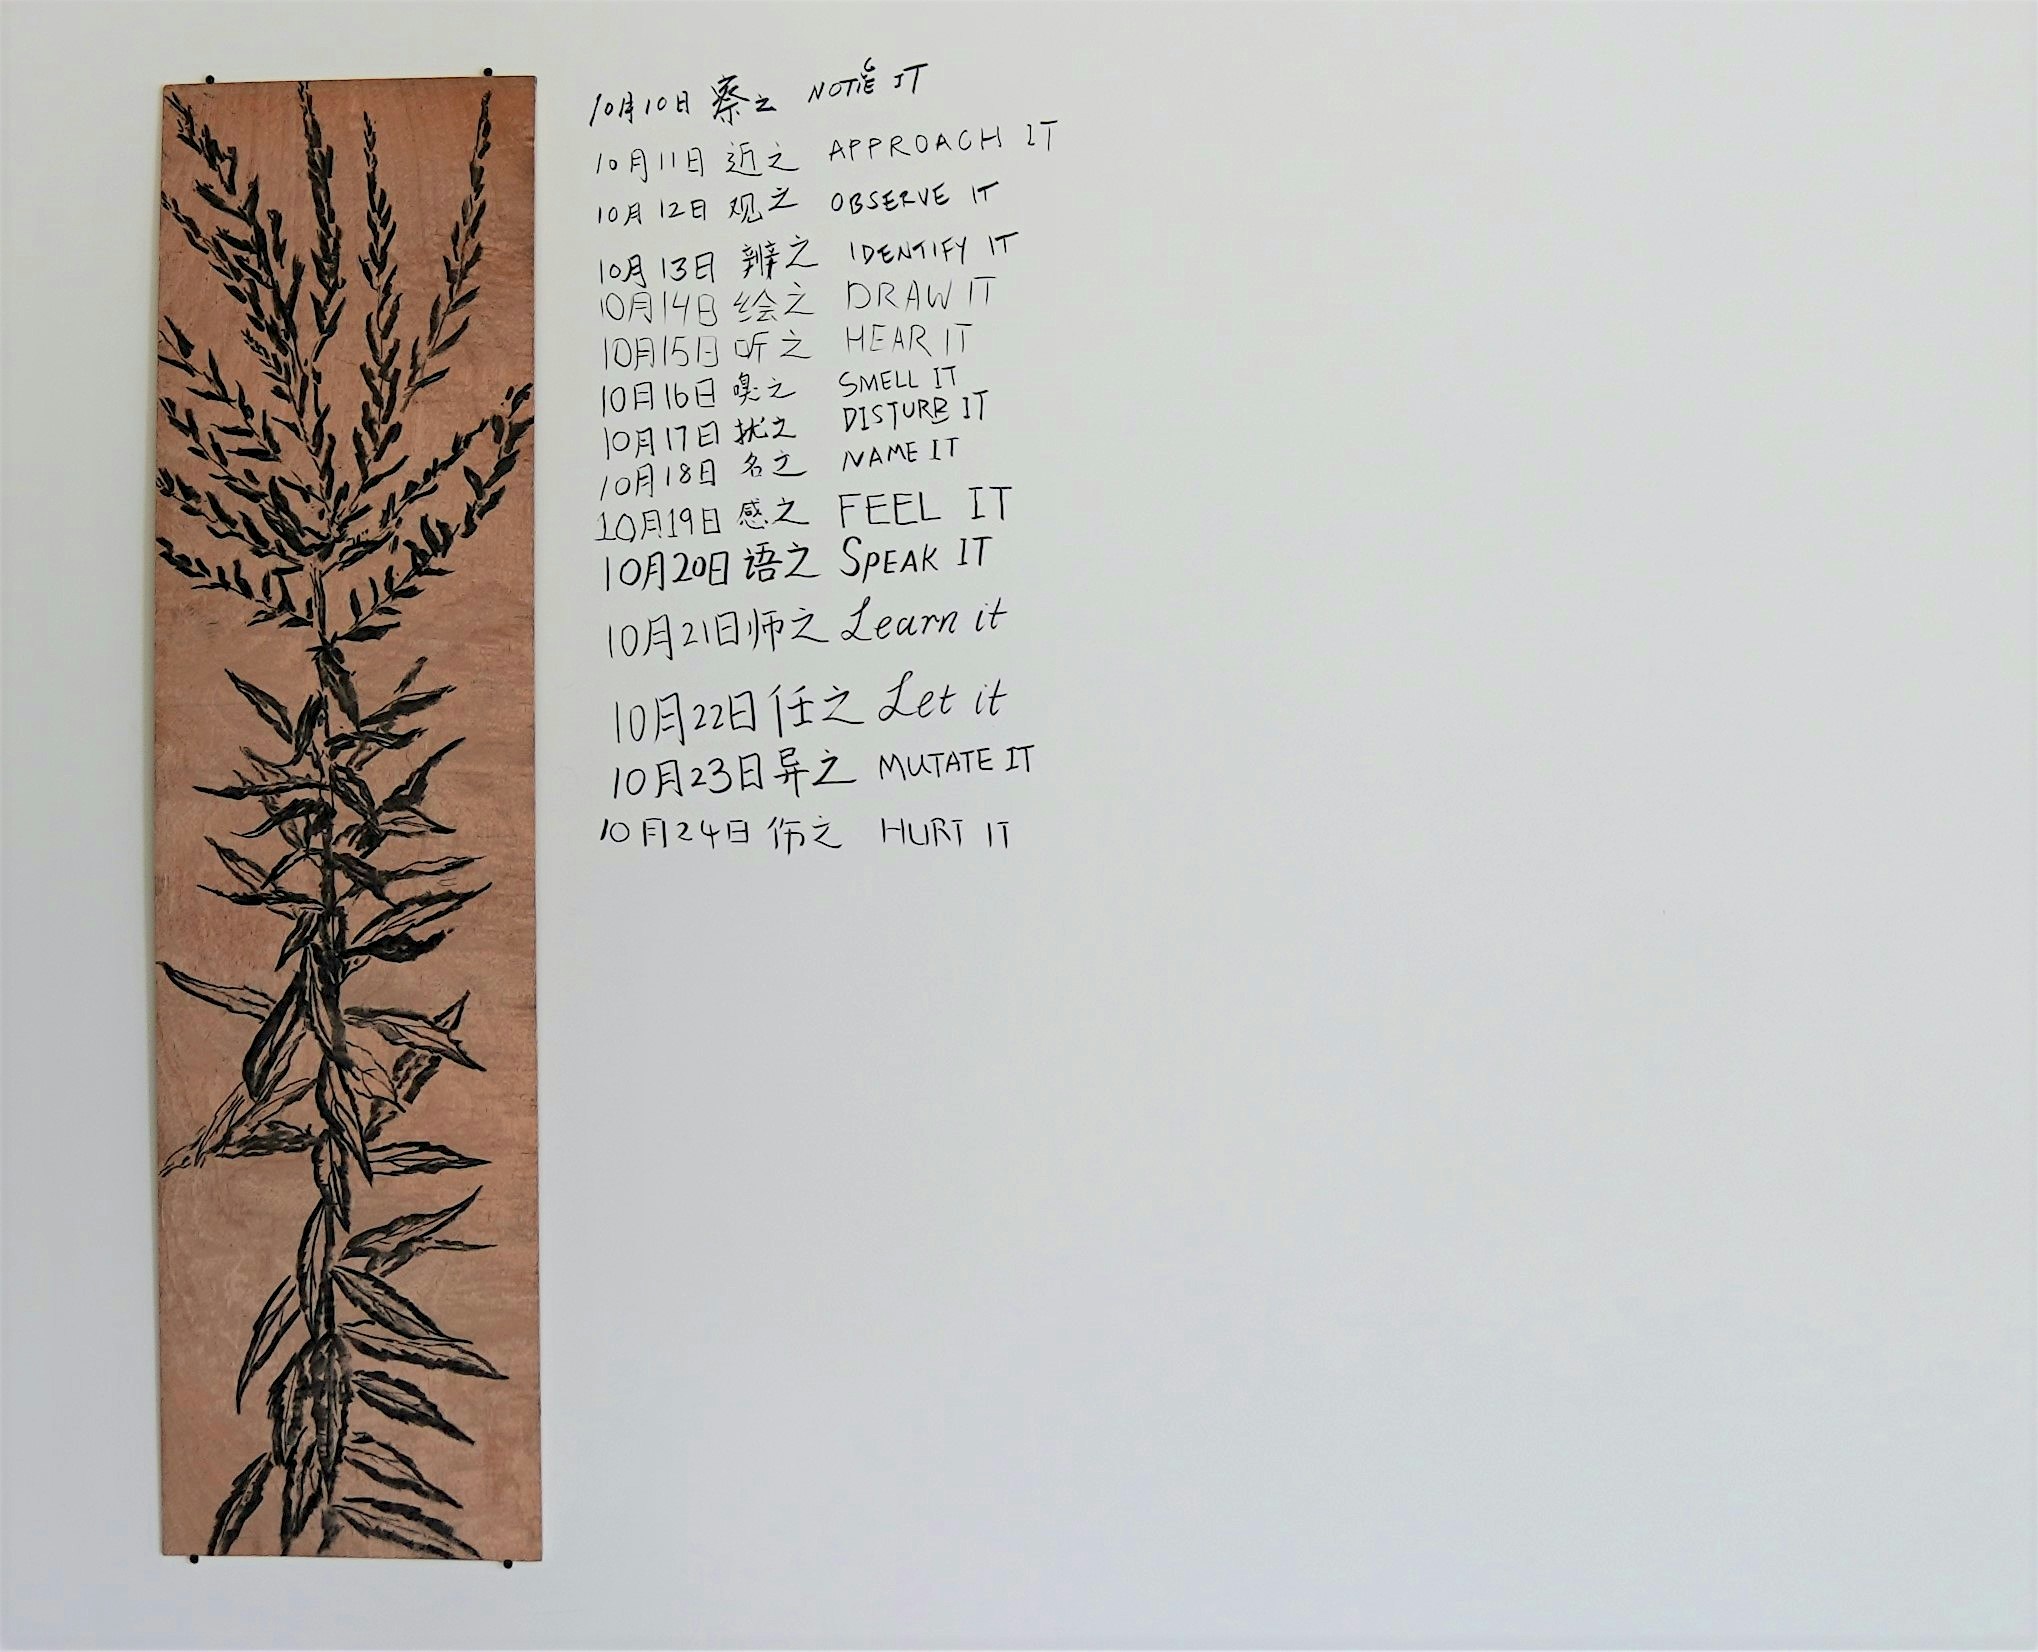 10月10日 察之 NOTICE IT
10月11日 近之 APPROACH IT
10月12日 观之 OBSERVE IT
10月13日 辨之 IDENTIFY IT
10月14日 绘之 DRAW IT
10月15日 听之 HEAR IT
10月16日 嗅之 SMELL IT
10月17日 扰之 DISTURB IT
10月18日 名之 NAME IT
10月19日 感之 FEEL IT
10月20日 语之 SPEAK IT
10月21日 师之 Learn it
10月22日 任之 Let it
10月23日 异之 MUTATE IT
10月24日 伤之 HURT IT